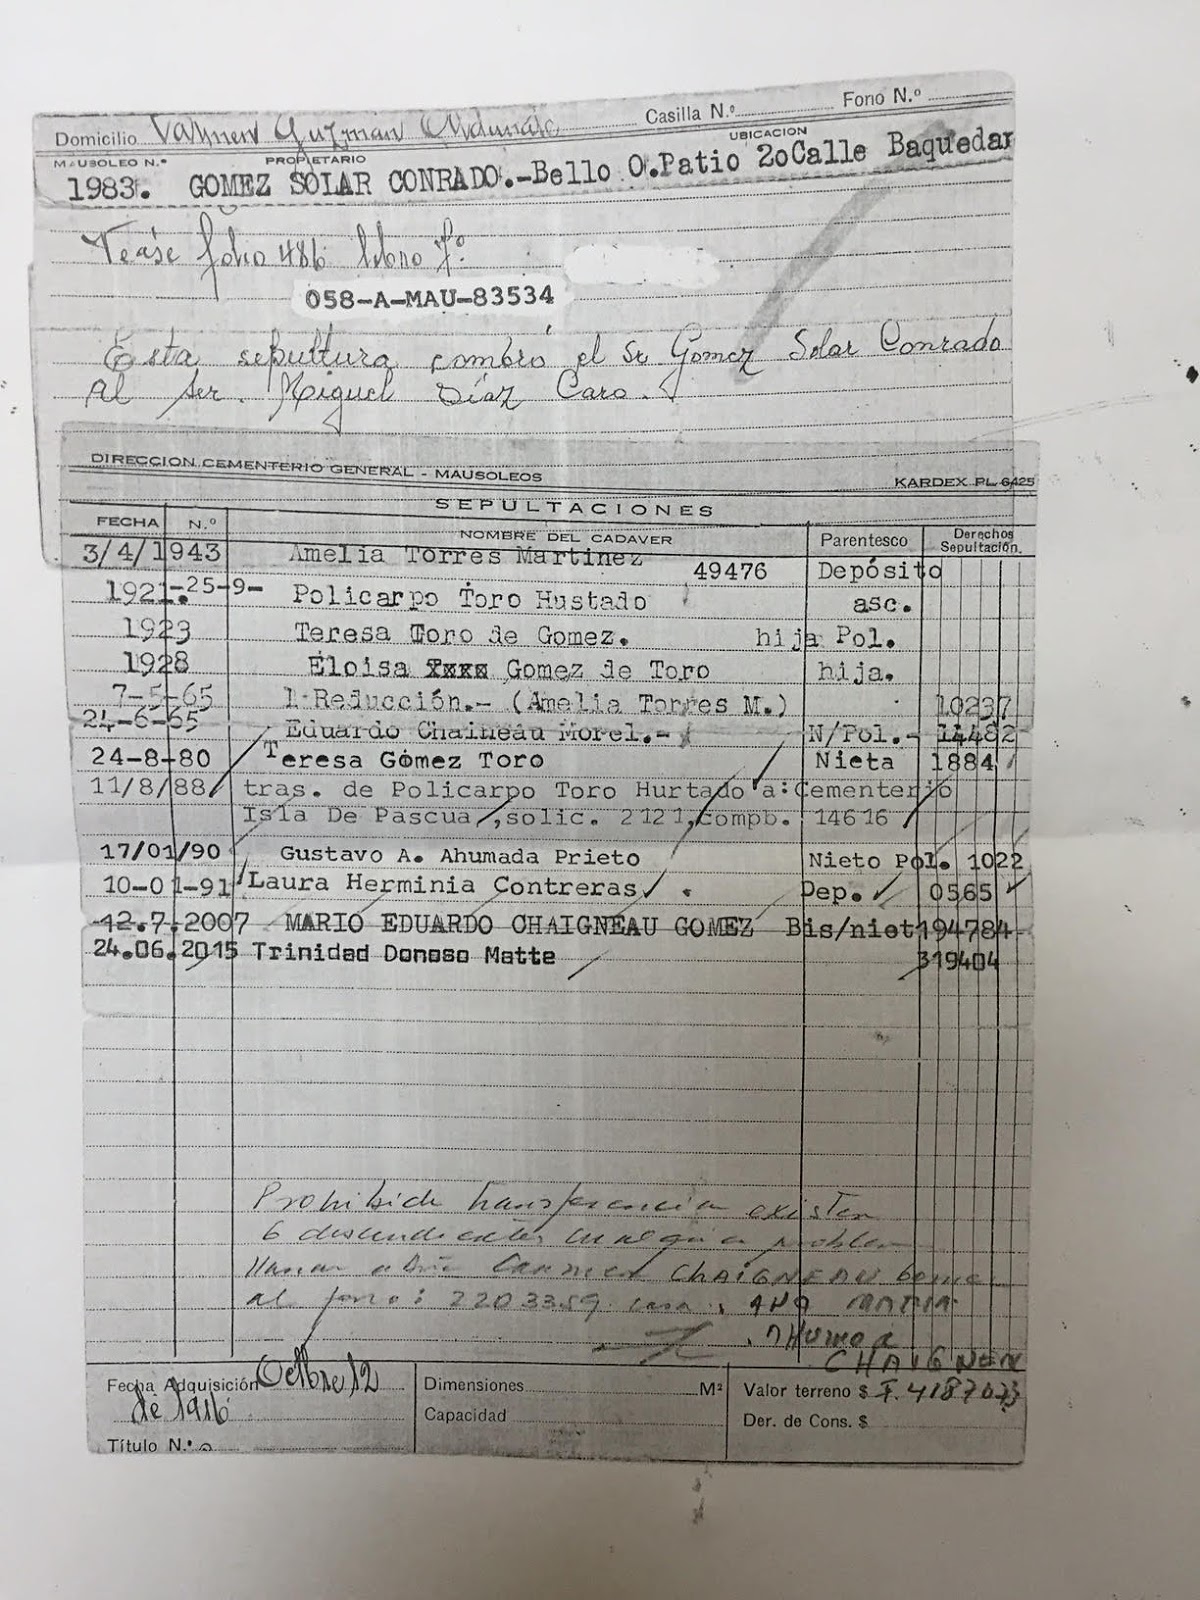 Domicilio Guzman Casilla N.º Fono N.º
MAUSOLEO N.º PROPIETARIO UBICACION
1983. GOMEZ SOLAR CONRADO.-Bello O.Patio 2oCalle Baquedan
folio 486 libro 7º
058-A-MAU-83534
Esta sepultura compró el Sr Gomez Solar Conrado
al Ser. Miguel Díaz Caro.
DIRECCION CEMENTERIO GENERAL - MAUSOLEOS KARDEX PL 6425
SEPULTACIONES
FECHA N.º NOMBRE DEL CADAVER Parentesco Derechos Sepultación.
3/4/1943 Amelia Torres Martinez 49476 Depósito
1921.-25-9- Policarpo Toro Hustado asc.
1923 Teresa Toro de Gomez. hija Pol.
1928 Eloisa xxxx Gomez de Toro hija.
7-5-65 1 Reducción.- (Amelia Torres M.) 10237
24-6-65 Eduardo Chaineau Morel.- N/Pol.- 14482
24-8-80 Teresa Gómez Toro Nieta 1884
11/8/88 tras. de Policarpo Toro Hurtado a:Cementerio
Isla De Pascua ,solic. 2121,compb. 14616
17/01/90 Gustavo A. Ahumada Prieto Nieto Pol. 1022
10-01-91 Laura Herminia Contreras Dep. 0565
12.7.2007 MARIO EDUARDO CHAIGNEAU GOMEZ Bis/niet194784
24.06.2015 Trinidad Donoso Matte 319404
Prohibida transferencia existen
6 descendientes cualquier problema
llamar a Carmen CHAIGNEAU Gomez
al fono: 2203359 casa, ANA MARIA
AHUMADA
CHAIGNEAU
Fecha Adquisición Octbre 12 Dimensiones M² Valor terreno $ 4187073
de 1916 Capacidad Der. de Cons. $
Título N.º